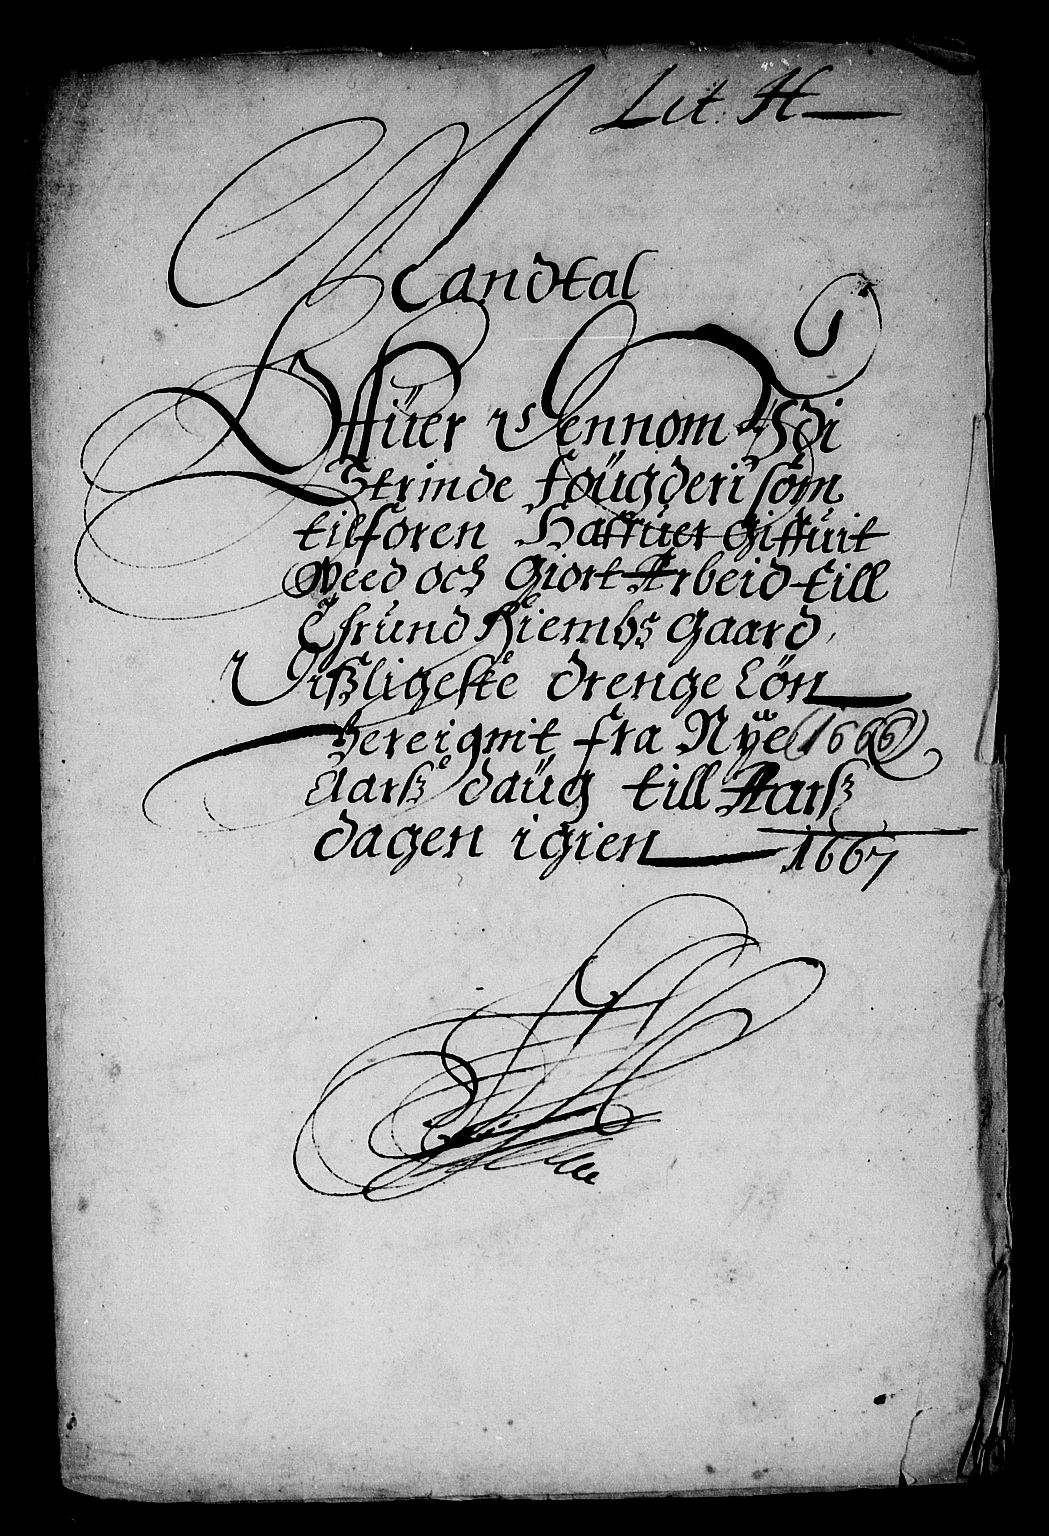 Lit: H
Mandtal
Offuer Dennom Udi
Strinde fougderi som
tilforen Haffuer Giffuit
Weed och Giort Arbeid till
Thrund Hiembs Gaard
Dißligeste drenge Løn
bereignit fra Nye 1666
Aarß daug till Aarß
dagen igien 1667